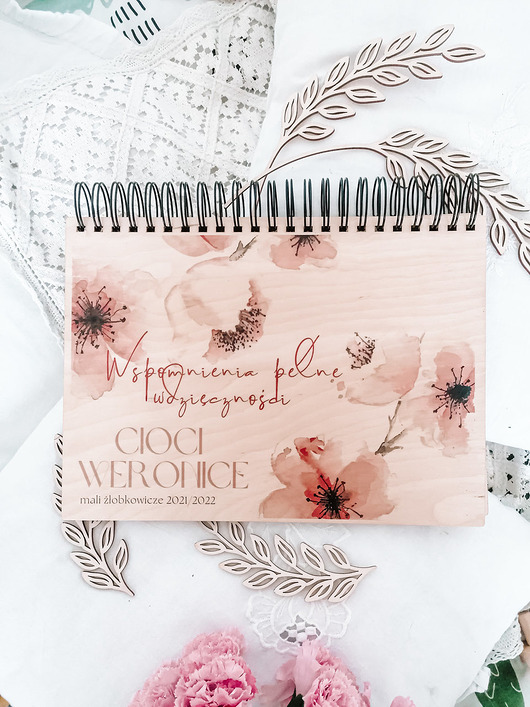 Wspomnienia pełne
wdzięczności
CIOCI
WERONICE
mali żłobkowicze 2021/2022